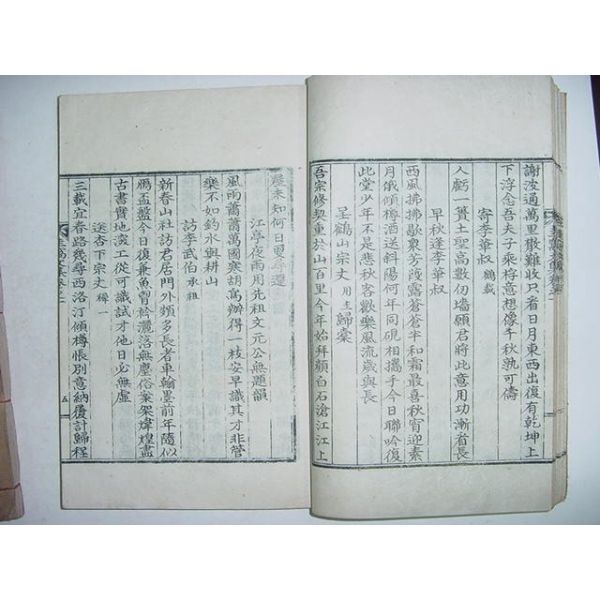 謝浚通萬里撤難收只看日月東西出復有乾坤上
下浮念吾夫子乘桴意想像千秋孰可儔
寄李華叔
人虧一簣土聖高數仞墻願君將此意用功漸看長
早秋逢李華叔
西風拂拂裛衆芳殘露蒼蒼半和霜最喜秋宵迎素
月俄傾樽酒送斜陽何年同硯相携手今日聯吟復
此堂少年不是悲秋客歡樂風流歲與長
呈鶴山宗丈
吾宗修契重於山百里今年始拜顔白石滄江江上
屋未知何日更
江亭夜雨用先祖文元公無題韻
風雨蕭蕭萬國寒胡爲辦得一枝安早識其才非管
樂不如釣水與耕山
訪李武伯承祖
新春山社訪君居門外頻多長者車翰墨前年隨似
鴈盃盤今日復兼魚胷於灑落無塵俗案架煒煌盡
古書實地浚工從可識試才他日必無虛
送杏下宗丈
三載宜春路幾尋西洛汀傾樽悵別意納履計歸程
五